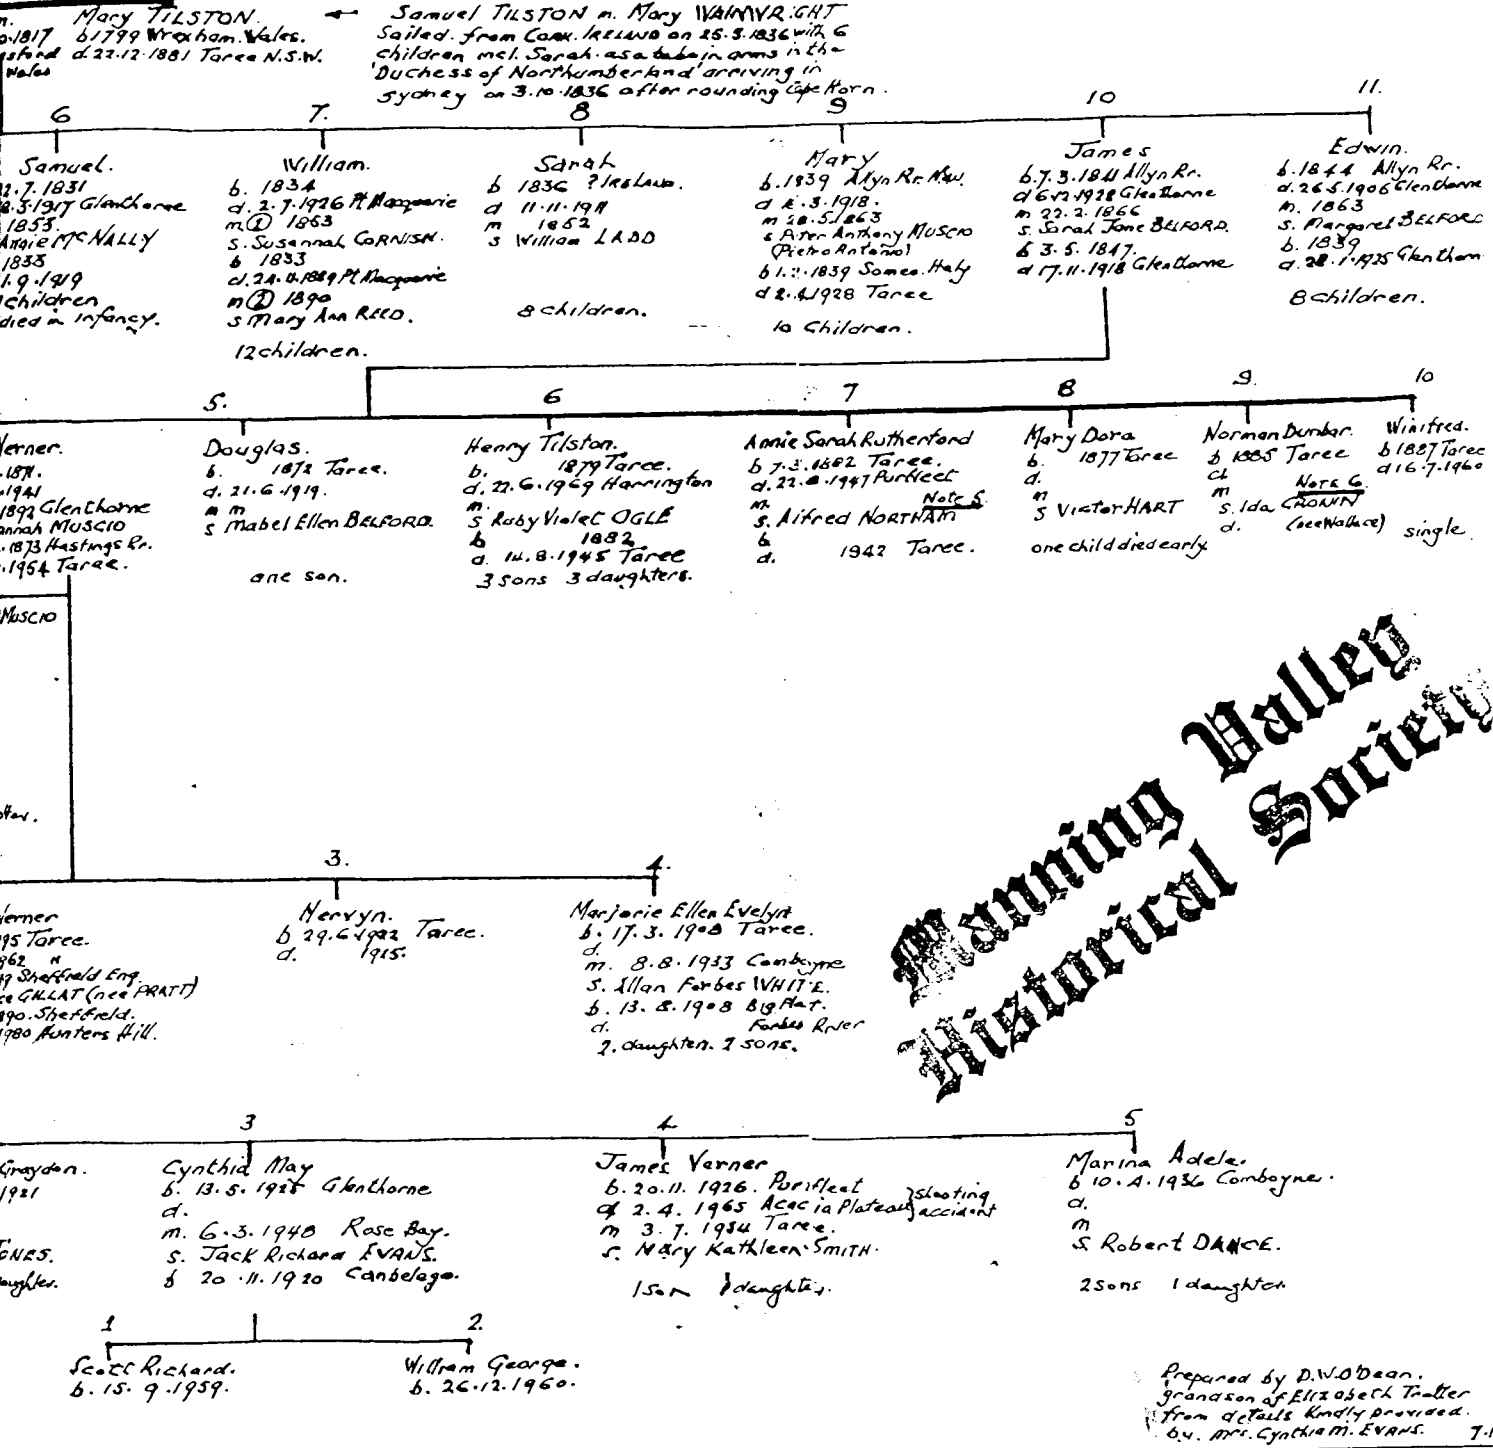 m. Mary TILSTON.
1817 b1799 Wrexham. Wales.
d. 22.12.1881 Taree N.S.W.
Wales
← Samuel TILSTON m. Mary WAINWRIGHT
Sailed from Cork. IRELAND on 25.5.1836 with 6
children incl. Sarah as a babe in arms in the
'Duchess of Northumberland' arriving in
Sydney on 3.10.1836 after rounding Cape Horn.
6
Samuel.
2.7.1831
8.3.1917 Glenthorne
1853.
Annie McNALLY
1833
1.9.1919
children
died in infancy.
7.
William.
b. 1834
d. 2.7.1926 Pt Macquarie
m ① 1863
s. Susannah CORNISH.
b 1833
d. 24. .1889 Pt Macquarie
m ② 1890
s Mary Ann REED.
12 children.
8
Sarah
b 1836 ? IRELAND.
d 11.11.1911
m 1852
s William LADD
8 children.
9
Mary
b. 1839 Allyn Rr. NSW.
d .3.1918.
m 28.5.1863
s Peter Anthony MUSCIO
(Pietro Antonio)
b 1.2.1839 Someo. Italy
d 2.4.1928 Taree
10 Children.
10
James
b. 7.3.1841 Allyn Rr.
d 6.12.1928 Glenthorne
m 22.2.1866
s. Sarah Jane BELFORD.
b 3.5.1847.
d 17.11.1918 Glenthorne
11.
Edwin.
b. 1844 Allyn Rr.
d. 26.5.1906 Glenthorne
m. 1863
s. Margaret BELFORD
b. 1839
d. 28.1.1925 Glenthorn
8 children.
Verner.
1871.
1941
1892 Glenthorne
annah MUSCIO
.1873 Hastings Rr.
.1954 Taree.
5.
Douglas.
b. 1872 Taree.
d. 21.6.1919.
m m
s Mabel Ellen BELFORD.
one son.
6
Henry Tilston.
b. 1879 Taree.
d. 22.6.1969 Harrington
m.
s Ruby Violet OGLE
b 1882
d. 14.8.1945 Taree
3 sons 3 daughters.
7
Annie Sarah Rutherford
b 7.3.1882 Taree.
d. 22.8.1947 Purfleet
m. Note 5
s. Alfred NORTHAM
b
d. 1942 Taree.
8
Mary Dora
b. 1877 Taree
d.
m
s Victor HART
one child died early
9.
Norman Dunbar.
b 1885 Taree
d
m Note 6
s. Ida CRONIN
d. (see Wallace)
10
Winifred.
b 1887 Taree
d 16.7.1960
single.
MUSCIO
Verner
95 Taree.
962 "
19 Sheffield Eng.
ce GILLAT (nee PRATT)
890. Sheffield.
1980 Hunters Hill.
3.
Mervyn.
b 29.6.1902 Taree.
d. 1915.
4.
Marjorie Ellen Evelyn
b. 17.3.1908 Taree.
d.
m. 8.8.1933 Comboyne
s. Allan Forbes WHITE.
b. 13.8.1908 Big Flat.
d. Forbes River
2. daughters. 2 sons.
Manning Valley
Historical Society
Graydon.
1921
JONES.
daughter.
3
Cynthia May
b. 13.5.1925 Glenthorne
d.
m. 6.3.1948 Rose Bay.
s. Jack Richard EVANS.
b 20.11.1920 Canbelego.
4
James Verner
b. 20.11.1926. Purfleet
d 2.4.1965 Acacia Plateau } shooting accident
m 3.7.1954 Taree.
s. Mary Kathleen SMITH.
1 son 1 daughter.
5
Marina Adele.
b 10.4.1936 Comboyne.
d.
m
s Robert DANCE.
2 sons 1 daughter.
1
Scott Richard.
b. 15.9.1959.
2.
William George.
b. 26.12.1960.
Prepared by D.W. O'Dean.
grandson of Elizabeth Trotter
from details kindly provided.
by. Mrs. Cynthia M. EVANS.